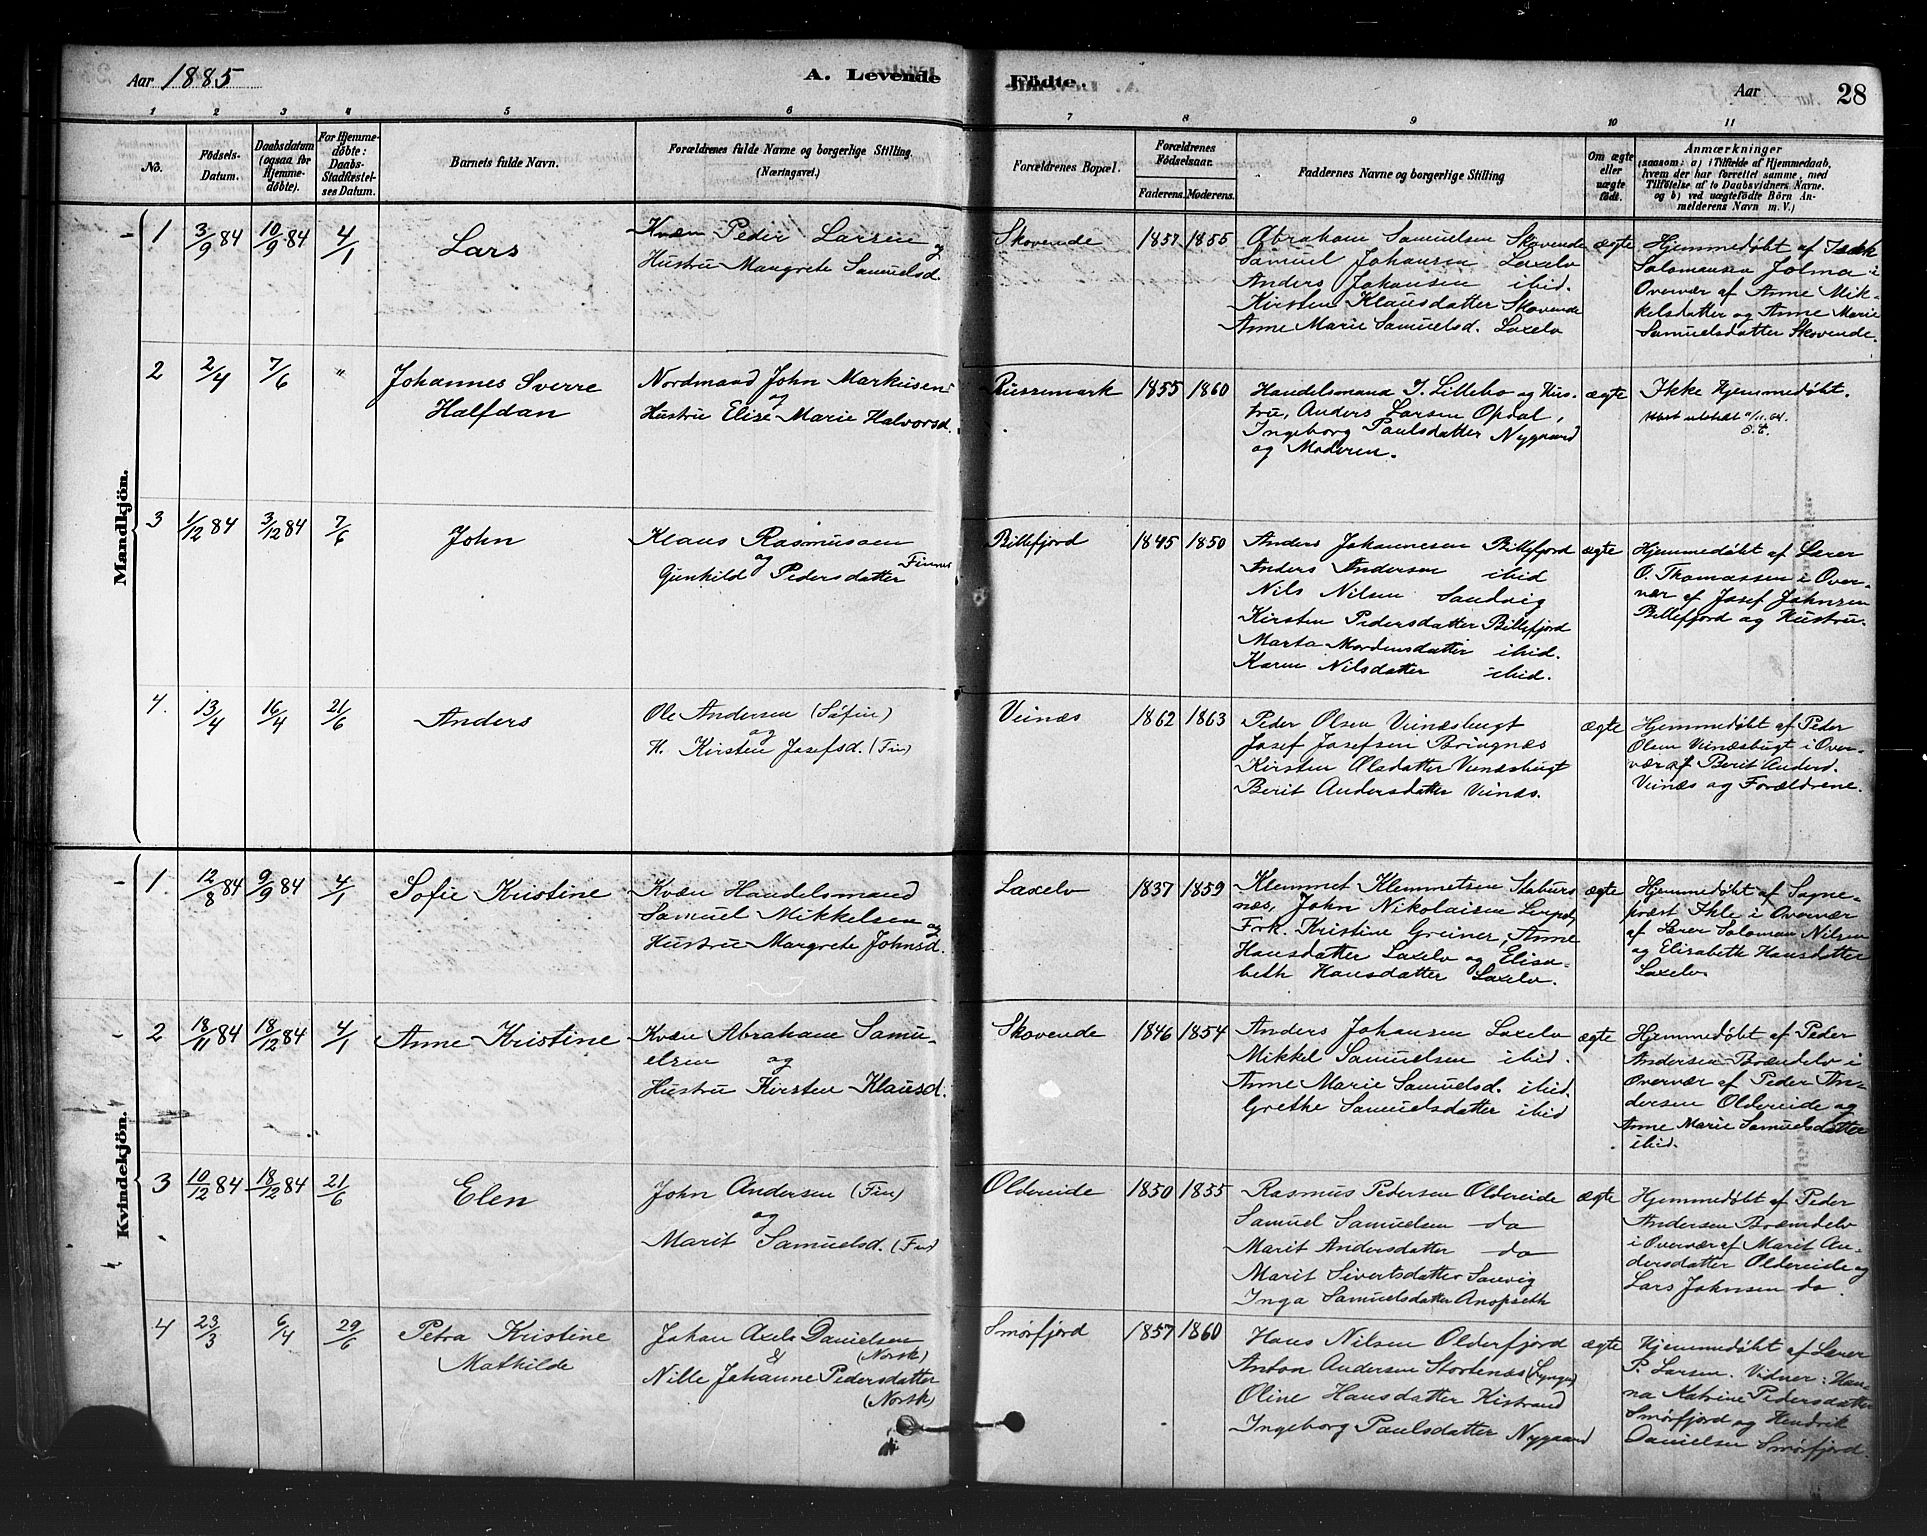 Aar 1885
A. Levende
Fødte.
Aar
28
1 2 3 4 5 6 7 8 9 10 11
No.
Fødsels-
Datum.
Daabsdatum
(ogsaa for
Hjemme-
døbte).
For Hjemme-
døbte:
Daabs-
Stadfæstel-
ses Datum.
Barnets fulde Navn.
Forældrenes fulde Navne og borgerlige Stilling.
(Næringsvei.)
Forældrenes Bopæl.
Forældrenes
Fødselsaar.
Faderens. Moderens.
Faddernes Navne og borgerlige Stilling
Om ægte
eller
uægte
født.
Anmærkninger
(saasom: a) i Tilfælde af Hjemmedaab,
hvem der har forrettet samme, med
Tilføielse af to Daabsvidners Navne.
og b) ved uægtefødte Børn An-
melderens Navn m. V.)
Mandkjön.
1
3/9 84
10/9 84
4/1
Lars
Kvæn Peder Larsen
og
Hustru Margrete Samuelsd.
Skovende
1857 1855
Abraham Samuelsen Skovende
Samuel Johansen Laxelv
Anders Johansen ibid.
Kirsten Klausdatter Skovende
Anne Marie Samuelsd. Laxelv
ægte
Hjemmedøbt af Isak
Salomonsen Jolma i
Overvær af Anne Mik-
kelsdatter og Anne Marie
Samuelsdatter Skovende.
2
2/4
7/6
"
Johannes Sverre
Halfdan
Nordmand John Markusen
og
Hustru Elise Marie Halvorsd.
Russemark
1855 1860
Handelsmand I. Lillebo og Hus-
tru, Anders Larsen Opdal,
Ingeborg Paulsdatter Nygaard
og Moderen.
ægte
Ikke hjemmedøbt.
3
1/12 84
3/12 84
7/6
John
Klaus Rasmussen
og
Gunhild Pedersdatter Finner
Billefjord
1845 1850
Anders Johannesen Billefjord
Anders Andersen ibid
Nils Nilsen Sandvig
Kirsten Pedersdatter Billefjord
Marta Mordensdatter ibid.
Karen Nilsdatter ibid.
ægte
Hjemmedøbt af Lærer
O. Thomassen i Over-
vær af Josef Johnsen
Billefjord og Hustru.
4.
13/4
16/4
21/6
Anders
Ole Andersen (Søfin)
og
H. Kirsten Josefsd. (Fin)
Veinæs
1862 1863
Peder Olsen Veinæsbugt
Josef Josefsen Bringnæs
Kirsten Olsdatter Veinæsbugt
Berit Andersdatter Veinæs.
ægte
Hjemmedøbt af Peder
Olsen Veinæsbugt i Over-
vær af Berit Andersd.
Veinæs og Forældrene.
Kvindekjön.
1.
12/8 84
9/9 84
4/1
Sofie Kristine
Kvæn Handelsmand
Samuel Mikkelsen og
Hustru Margrete Johnsd.
Laxelv
1837 1859
Klemmet Klemmetsen Staburs-
næs, John Nikolaisen Leirpol,
Frk. Kristine Greiner, Anne
Hansdatter Laxelv og Elisa-
beth Hansdatter Laxelv.
ægte
Hjemmedøbt af Sogne-
præst Ihle i Overvær
af Lærer Saloman Nilsen
og Elisabeth Hansdatter
Laxelv.
2
18/11 84
18/12 84
4/1
Anne Kristine
Kvæn Abraham Samu-
elsen og
Hustru Kirsten Klausd.
Skovende
1846 1854
Anders Johansen Laxelv
Mikkel Samuelsen ibid.
Anne Marie Samuelsd. ibid.
Grethe Samuelsdatter ibid
ægte
Hjemmedøbt af Peder
Andersen Brændelv i
Overvær af Peder An-
dersen Oldereide og
Anne Marie Samuelsdatter
ibid.
3
10/12 84
18/12 84
21/6
Elen
John Andersen (Fin)
og
Marit Samuelsd. (Fin)
Oldereide
1850 1855
Rasmus Pedersen Oldereide
Samuel Samuelsen do
Marit Andersdatter do
Marit Sivertsdatter Sanvig
Inga Samuelsdatter Anopseth
ægte
Hjemmedøbt af Peder
Andersen Brændelv
i Overvær af Marit An-
dersdatter Oldereide og
Lars Johnsen do.
4
23/3
6/4
29/6
Petra Kristine
Mathilde
Johan Axel Danielsen
(Norsk)
&
Nille Johanne Pedersdatter
(Norsk)
Smørfjord
1857 1860
Hans Nilsen Olderfjord
Anton Andersen Stortenæs (Lyngen)
Oline Hansdatter Kistrand
Ingeborg Paulsdatter Nygaard
ægte
Hjemmedøbt af Lærer
P. Larsen. Vidner: Han-
na Katrine Pedersdatter
Smørfjord og Hendrik
Danielsen Smørfjord.